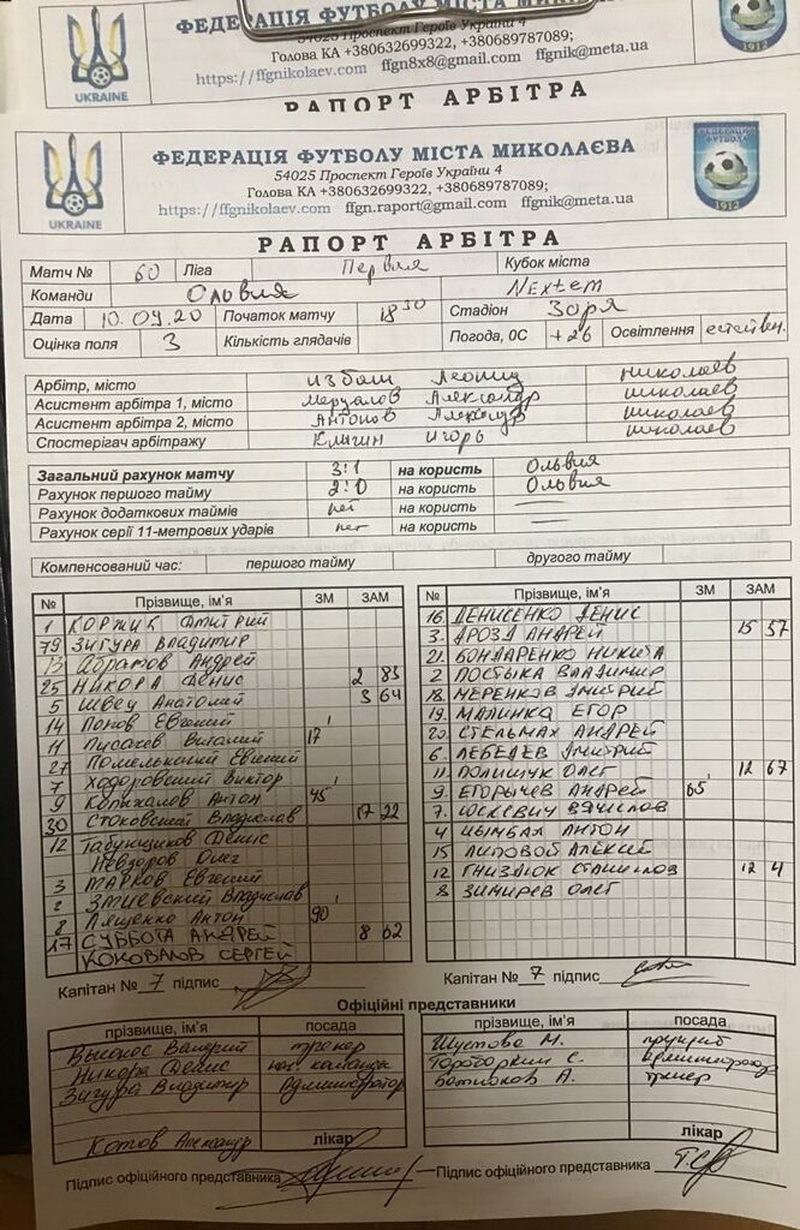 ФЕДЕРАЦІЯ ФУТБОЛУ МІСТА МИКОЛАЄВА
54025 Проспект Героїв України 4
Голова КА +380632699322, +380689787089;
https://ffgnikolaev.com ffgn8x8@gmail.com ffgnik@meta.ua
UKRAINE
1912
РАПОРТ АРБІТРА
ФЕДЕРАЦІЯ ФУТБОЛУ МІСТА МИКОЛАЄВА
54025 Проспект Героїв України 4
Голова КА +380632699322, +380689787089;
https://ffgnikolaev.com ffgn.raport@gmail.com ffgnik@meta.ua
UKRAINE
ФЕДЕРАЦИЯ ФУТБОЛА
1912
РАПОРТ АРБІТРА
Матч № 60 Ліга Первая Кубок міста
Команди Ольвия Nextem
Дата 10.09.20 Початок матчу 18 30 Стадіон Зоря
Оцінка поля 3 Кількість глядачів Погода, 0С +26 Освітлення естествен.
Арбітр, місто Избаш Леонид Николаев
Асистент арбітра 1, місто Александр Николаев
Асистент арбітра 2, місто Антонов Александр Николаев
Спостерігач арбітражу Игорь Николаев
Загальний рахунок матчу 3:1 на користь Ольвия
Рахунок першого тайму 2:0 на користь Ольвия
Рахунок додаткових таймів нет на користь —
Рахунок серії 11-метрових ударів нет на користь —
Компенсований час: першого тайму другого тайму
№ Прізвище, ім'я ЗМ ЗАМ
1 Коржик Дмитрий
79 Зигура Владимир
13 Абрамов Андрей
25 Никора Денис 2 83
5 Швец Анатолий 3 64
14 Попов Евгений
11 Пусачев Виталий 17'
27 Евгений
7 Ходоровский Виктор
9 Копыхалов Антон 45'
30 Стоковский Владислав 17 22
12 Табунщиков Денис
Невзоров Олег
3 Марков Евгений
2 Змиевский Владислав
8 Лященко Антон 90'
17 Суббота Андрей 8 62
Коковалов Сергей
Капітан № 7 підпис
№ Прізвище, ім'я ЗМ ЗАМ
16. Денисенко Денис
3. Дрозд Андрей 15 57
21. Бондаренко Никита
2 Постыка Владимир
18. Меренков Дмитрий
19. Малинка Егор
20. Стельмах Андрей
6. Лебедев Дмитрий
11. Полищук Олег 12 67
9. Егорычев Андрей 65'
7. Юскевич Вячеслав
4 Цымбал Антон
15 Липовой Алексей
12 Гниздюк Станислав 12 4
8 Зимирев Олег
Капітан № 7 підпис
Офіційні представники
прізвище, ім'я посада
Валерий тренер
Никора Денис нач. команды
Зигура Владимир Администратор
Котов Александр лікар
прізвище, ім'я посада
Шустова М.
С. администратор
А. тренер
лікар
Підпис офіційного представника
Підпис офіційного представника